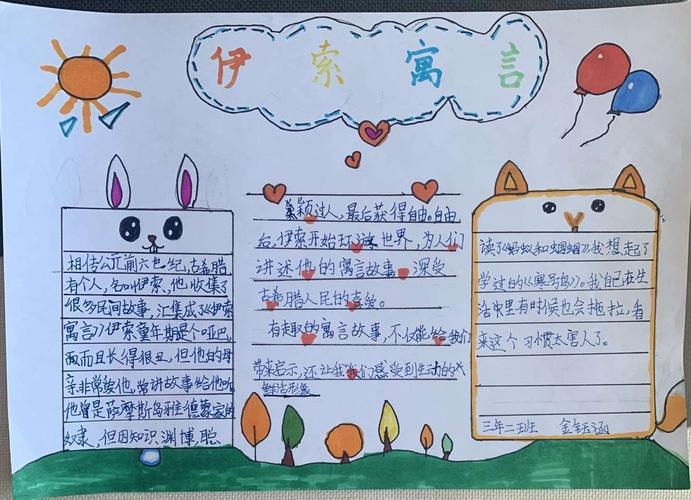 伊索寓言
相传公元前六世纪,古希腊
有个人,名叫伊索,他收集了
很多民间故事,汇集成了《伊索
寓言》伊索童年期是个哑巴,
而且长得很丑,但他的母
亲非常疼他,常讲故事给他听
他曾是萨摩斯岛雅德蒙家的
奴隶,但因知识渊博聪
颖过人,最后获得自由。自由
后,伊索开始环游世界,为人们
讲述他的寓言故事,深受
古希腊人民的喜爱。
有趣的寓言故事,不仅能给我们
带来启示,还让我们感受到生动的
鲜活形象
读了《蚂蚁和蝈蝈》我想起了
学过的《寒号鸟》。我自己在生
活中里有时候也会拖拉,看
来这个习惯太害人了。
三年二班 金钰涵